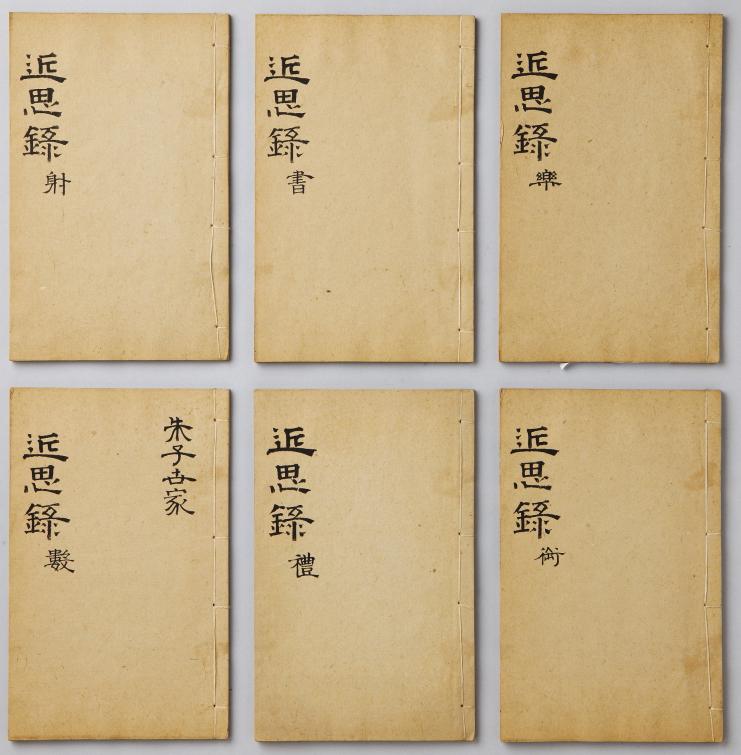 近思錄 射
近思錄 書
近思錄 樂
朱子世家
近思錄 數
近思錄 禮
近思錄 御